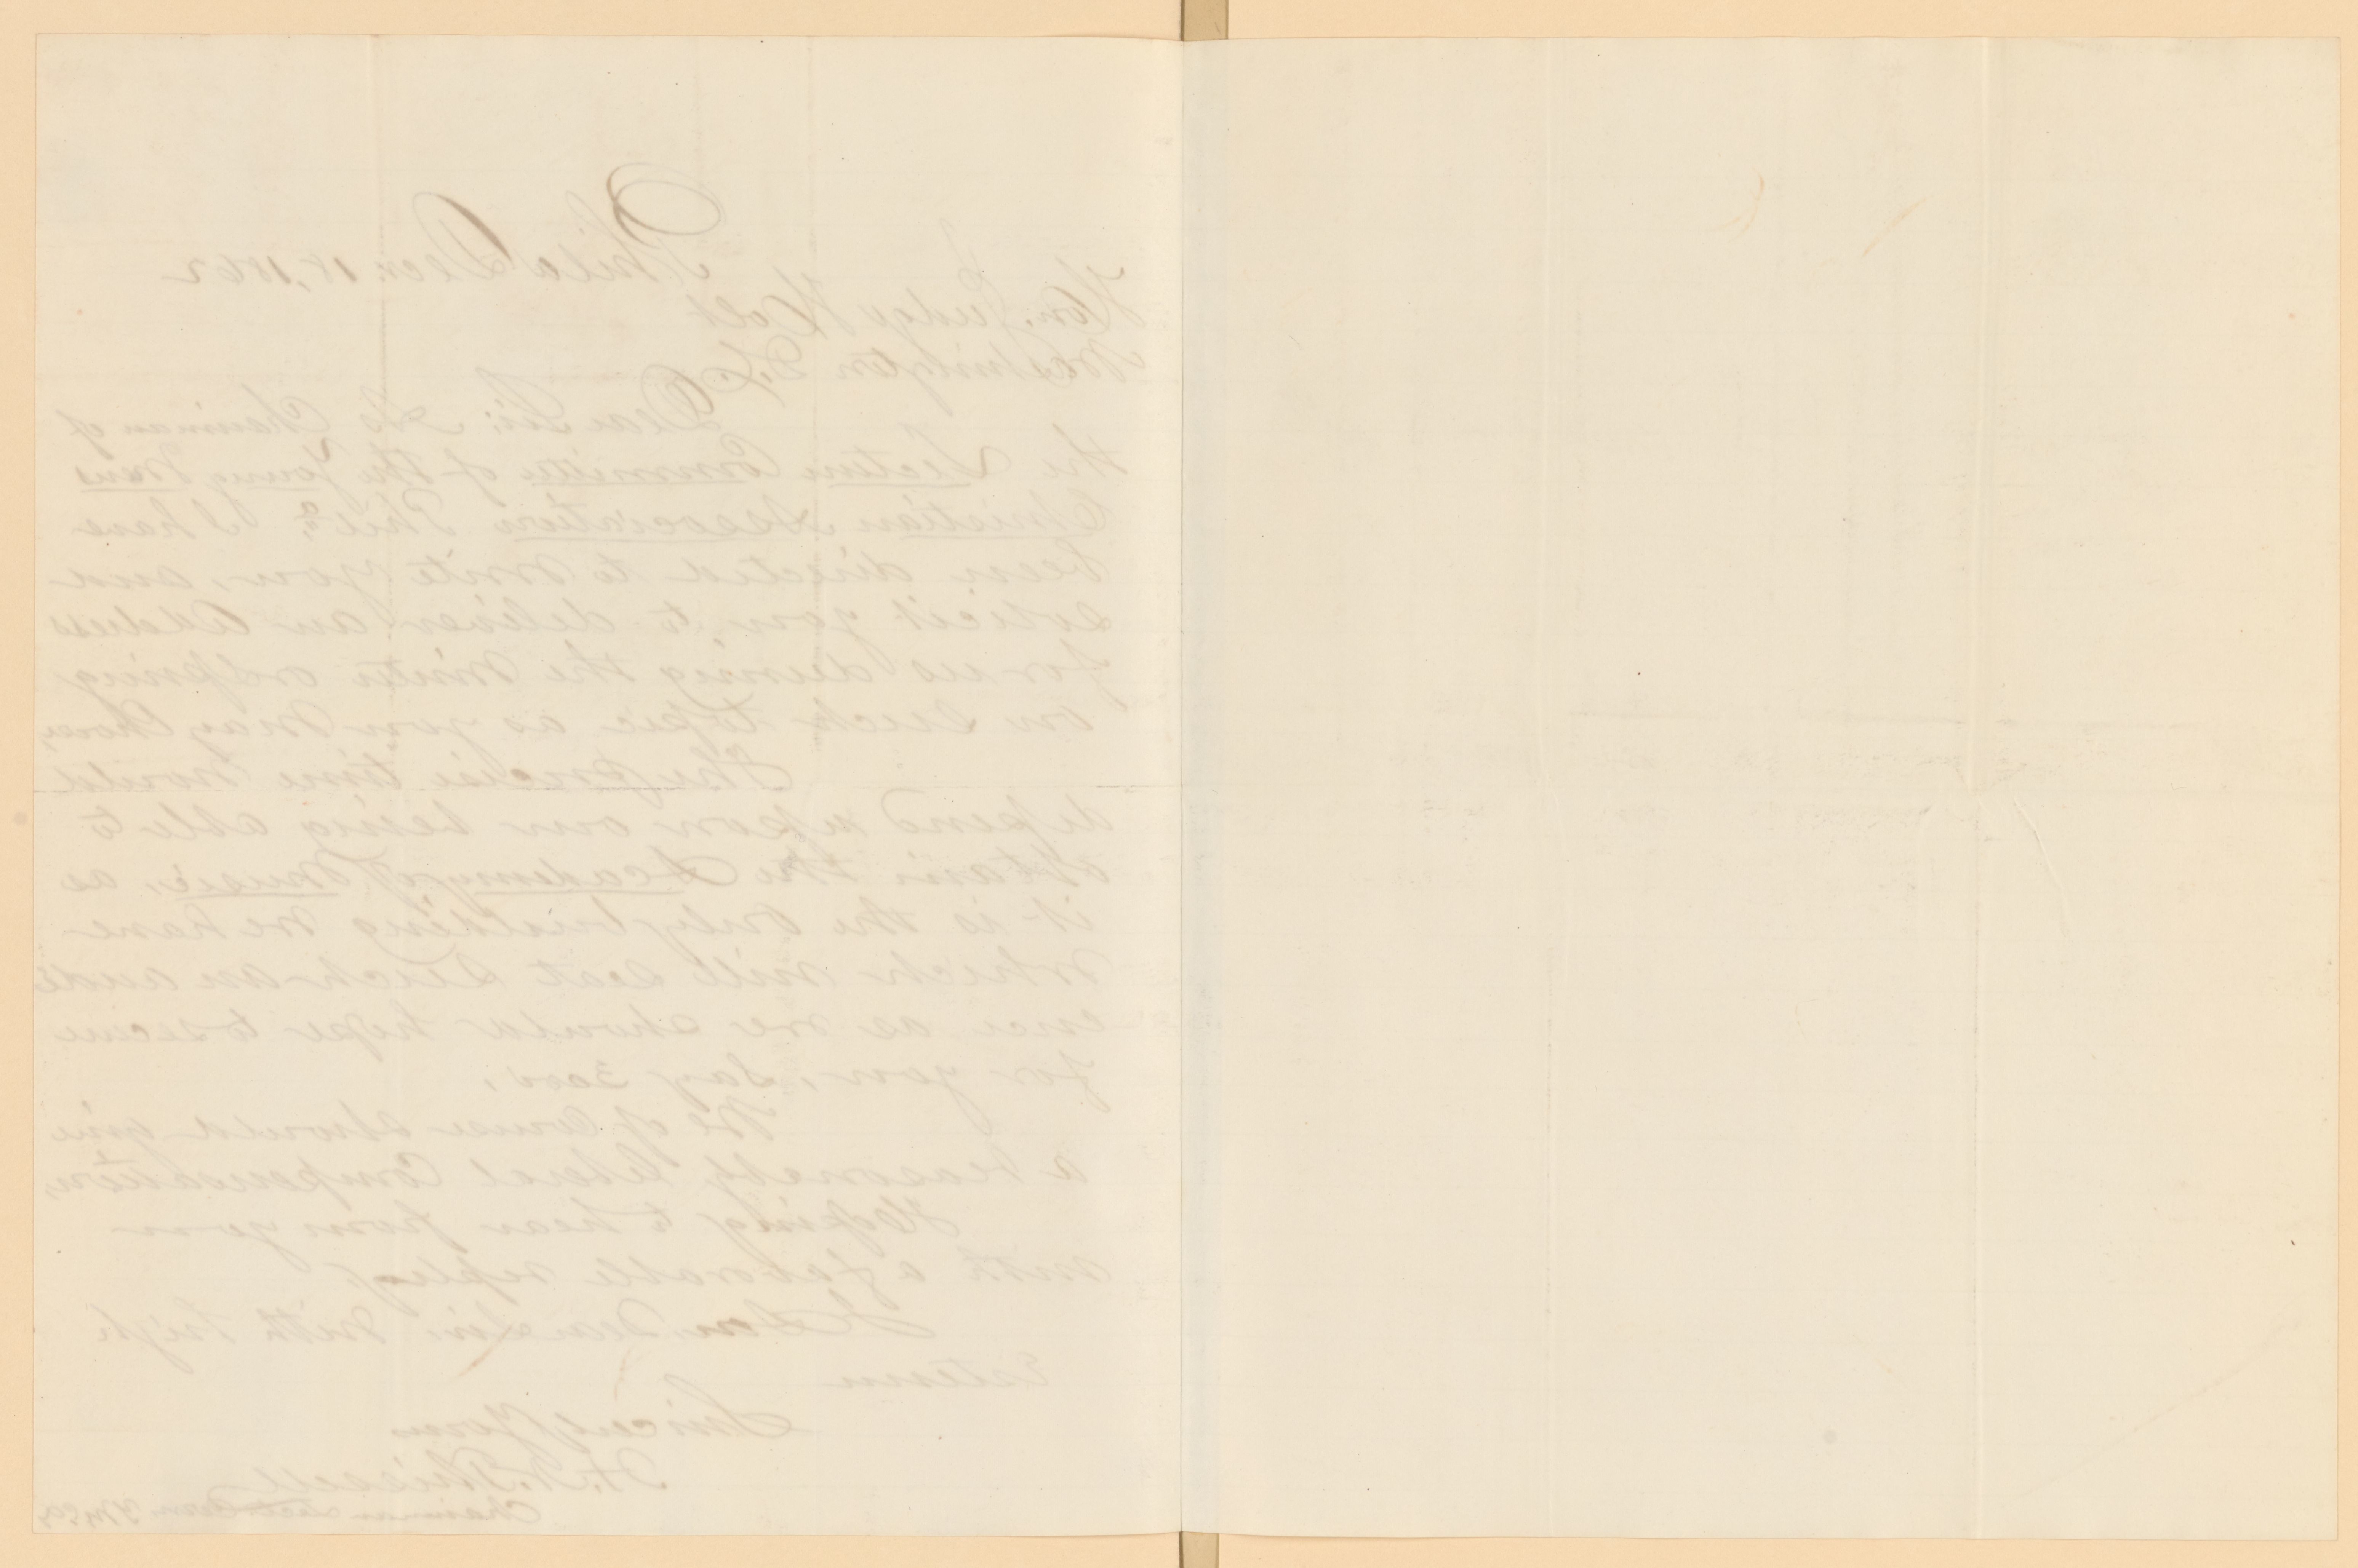 Phila Decr. 18, 1862
Hon. Judge Holt
Washington D.C.
Dear Sir: As Chairman of
the Lecture Committee of the Young Mens
Christian Association Phila, I have
been directed to write you, and
solicit you to deliver an Address
for us during the Winter or Spring
on such topic as you may Choose,
The precise time would
depend upon our being able to
obtain the Academy of Music, as
it is the only building we have
which will seat such an audi
ence as we should hope to secure
for you, say 3000.
We of Course should give
a reasonably liberal Compensation,
Hoping to hear from you
with a favorable reply
I Am, Dear Sir, with high
Esteem
Sincerely Yours
H. N. Thissell
Chairman Lect. Com Y.M.C.A.